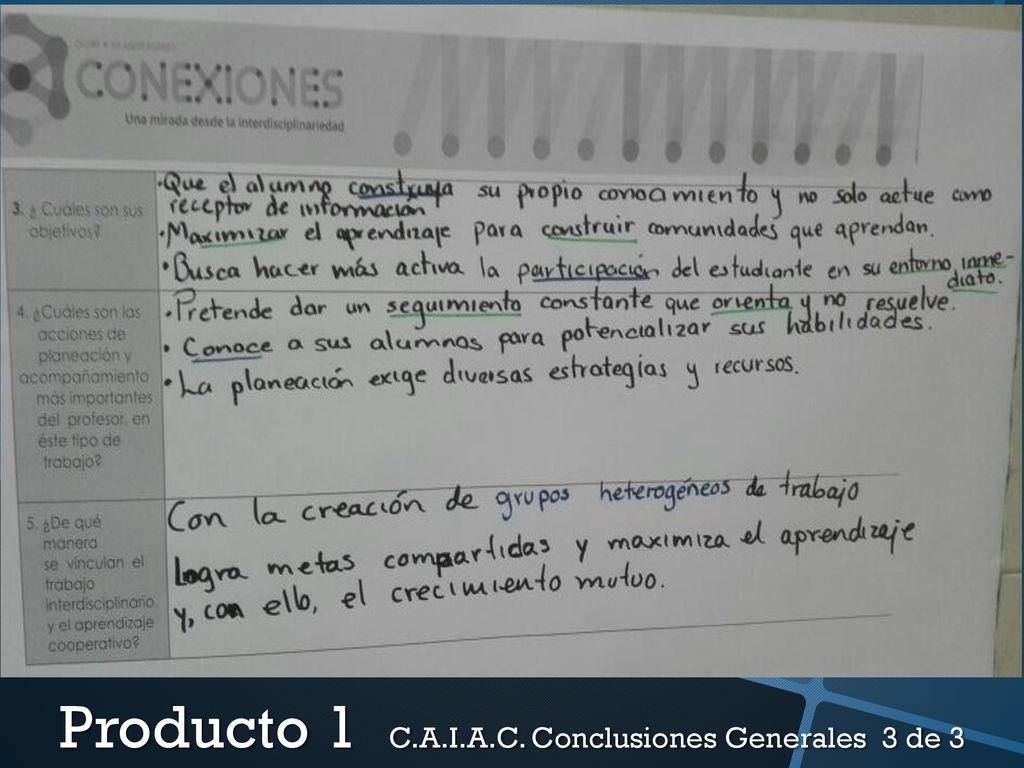 CONEXIONES
Una mirada desde la interdisciplinariedad
3. ¿ Cuáles son sus
objetivos?
•Que el alumno construya su propio conocimiento y no solo actue como
receptor de información
•Maximizar el aprendizaje para construir comunidades que aprendan.
•Busca hacer más activa la participación del estudiante en su entorno inme-
diato.
4. ¿Cuáles son las
acciones de
planeación y
acompañamiento
más importantes
del profesor, en
éste tipo de
trabajo?
•Pretende dar un seguimiento constante que orienta y no resuelve.
• Conoce a sus alumnos para potencializar sus habilidades.
•La planeación exige diversas estrategias y recursos.
5. ¿De qué
manera
se vinculan el
trabajo
interdisciplinario,
y el aprendizaje
cooperativo?
Con la creación de grupos heterogéneos de trabajo
logra metas compartidas y maximiza el aprendizaje
y, con ello, el crecimiento mutuo.
Producto 1 C.A.I.A.C. Conclusiones Generales 3 de 3